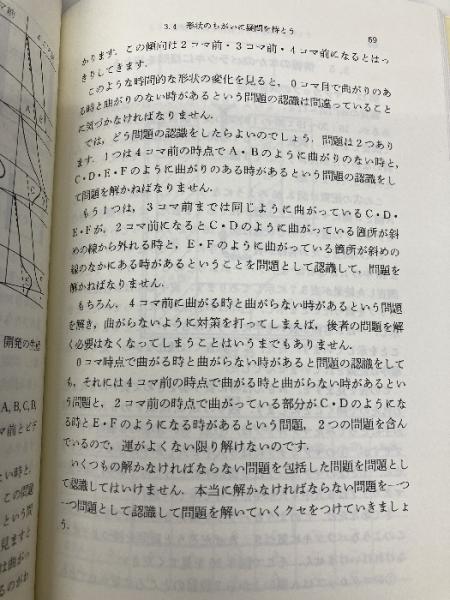 3.4 形状のちがいに疑問を持とう
59
かります．この傾向は2コマ前・3コマ前・4コマ前になるとはっ
きりしてきます．
このような時間的な形状の変化を見ると，0コマ目で曲がりのあ
る時と曲がりのない時があるという問題の認識は間違っていること
に気づかなければなりません．
では，どう問題の認識をしたらよいのでしょう．問題は2つあり
ます．1つは4コマ前の時点でA・Bのように曲がりのない時と，
C・D・E・Fのように曲がりのある時があるという問題の認識をし
て問題を解かねばなりません．
もう1つは，3コマ前までは同じように曲がっているC・D・
E・Fが，2コマ前になるとC・Dのように曲がっている箇所が斜
めの線から外れる時と，E・Fのように曲がっている箇所が斜めの
線のなかにある時があるということを問題として認識して，問題を
解かねばなりません．
もちろん，4コマ前に曲がる時と曲がらない時があるという問題
を解き，曲がらないように対策を打ってしまえば，後者の問題を解
く必要はなくなってしまうことはいうまでもありません．
0コマ時点で曲がる時と曲がらない時があると問題の認識をして
も，それには4コマ前の時点で曲がる時と曲がらない時があるとい
う問題と，2コマ前の時点で曲がっている部分がC・Dのようにな
る時とE・Fのようになる時があるという問題，2つの問題を含ん
でいるので，運がよくない限り解けないのです．
いくつもの解かなければならない問題を包括した問題を問題とし
て認識してはいけません．本当に解かなければならない問題を一つ
一つ問題として認識して問題を解いていくクセをつけていきましょ
う．
開発の生
A, B, C, D,
マ前とビデ
い時と，
この問題
という問
見ますと
は曲がっ
るのがわ